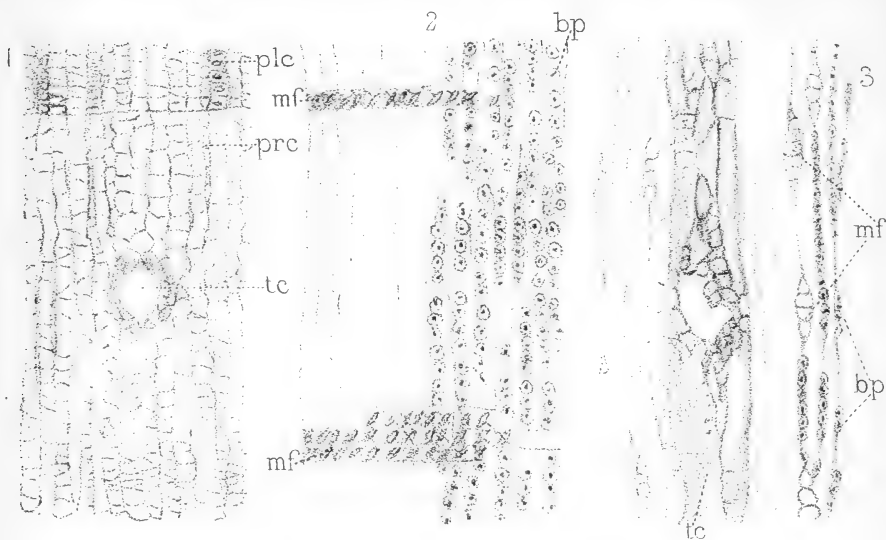 1
plc
prc
tc
2
bp
mf
mf
3
mf
bp
tc